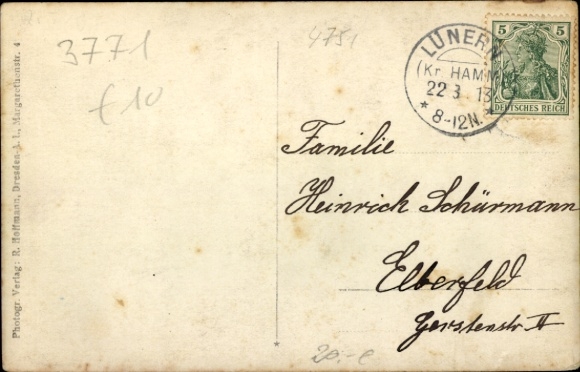 3771
4751
£10
LÜNERN
(Kr. HAMM)
22 3 13
* 8-12N. *
5 5
DEUTSCHES REICH
Familie
Heinrich Schürmann
Elberfeld
Gerstenstr. II
20.-€
Photogr. Verlag: R. Hoffmann, Dresden-J. 1., Margarethenstr. 4